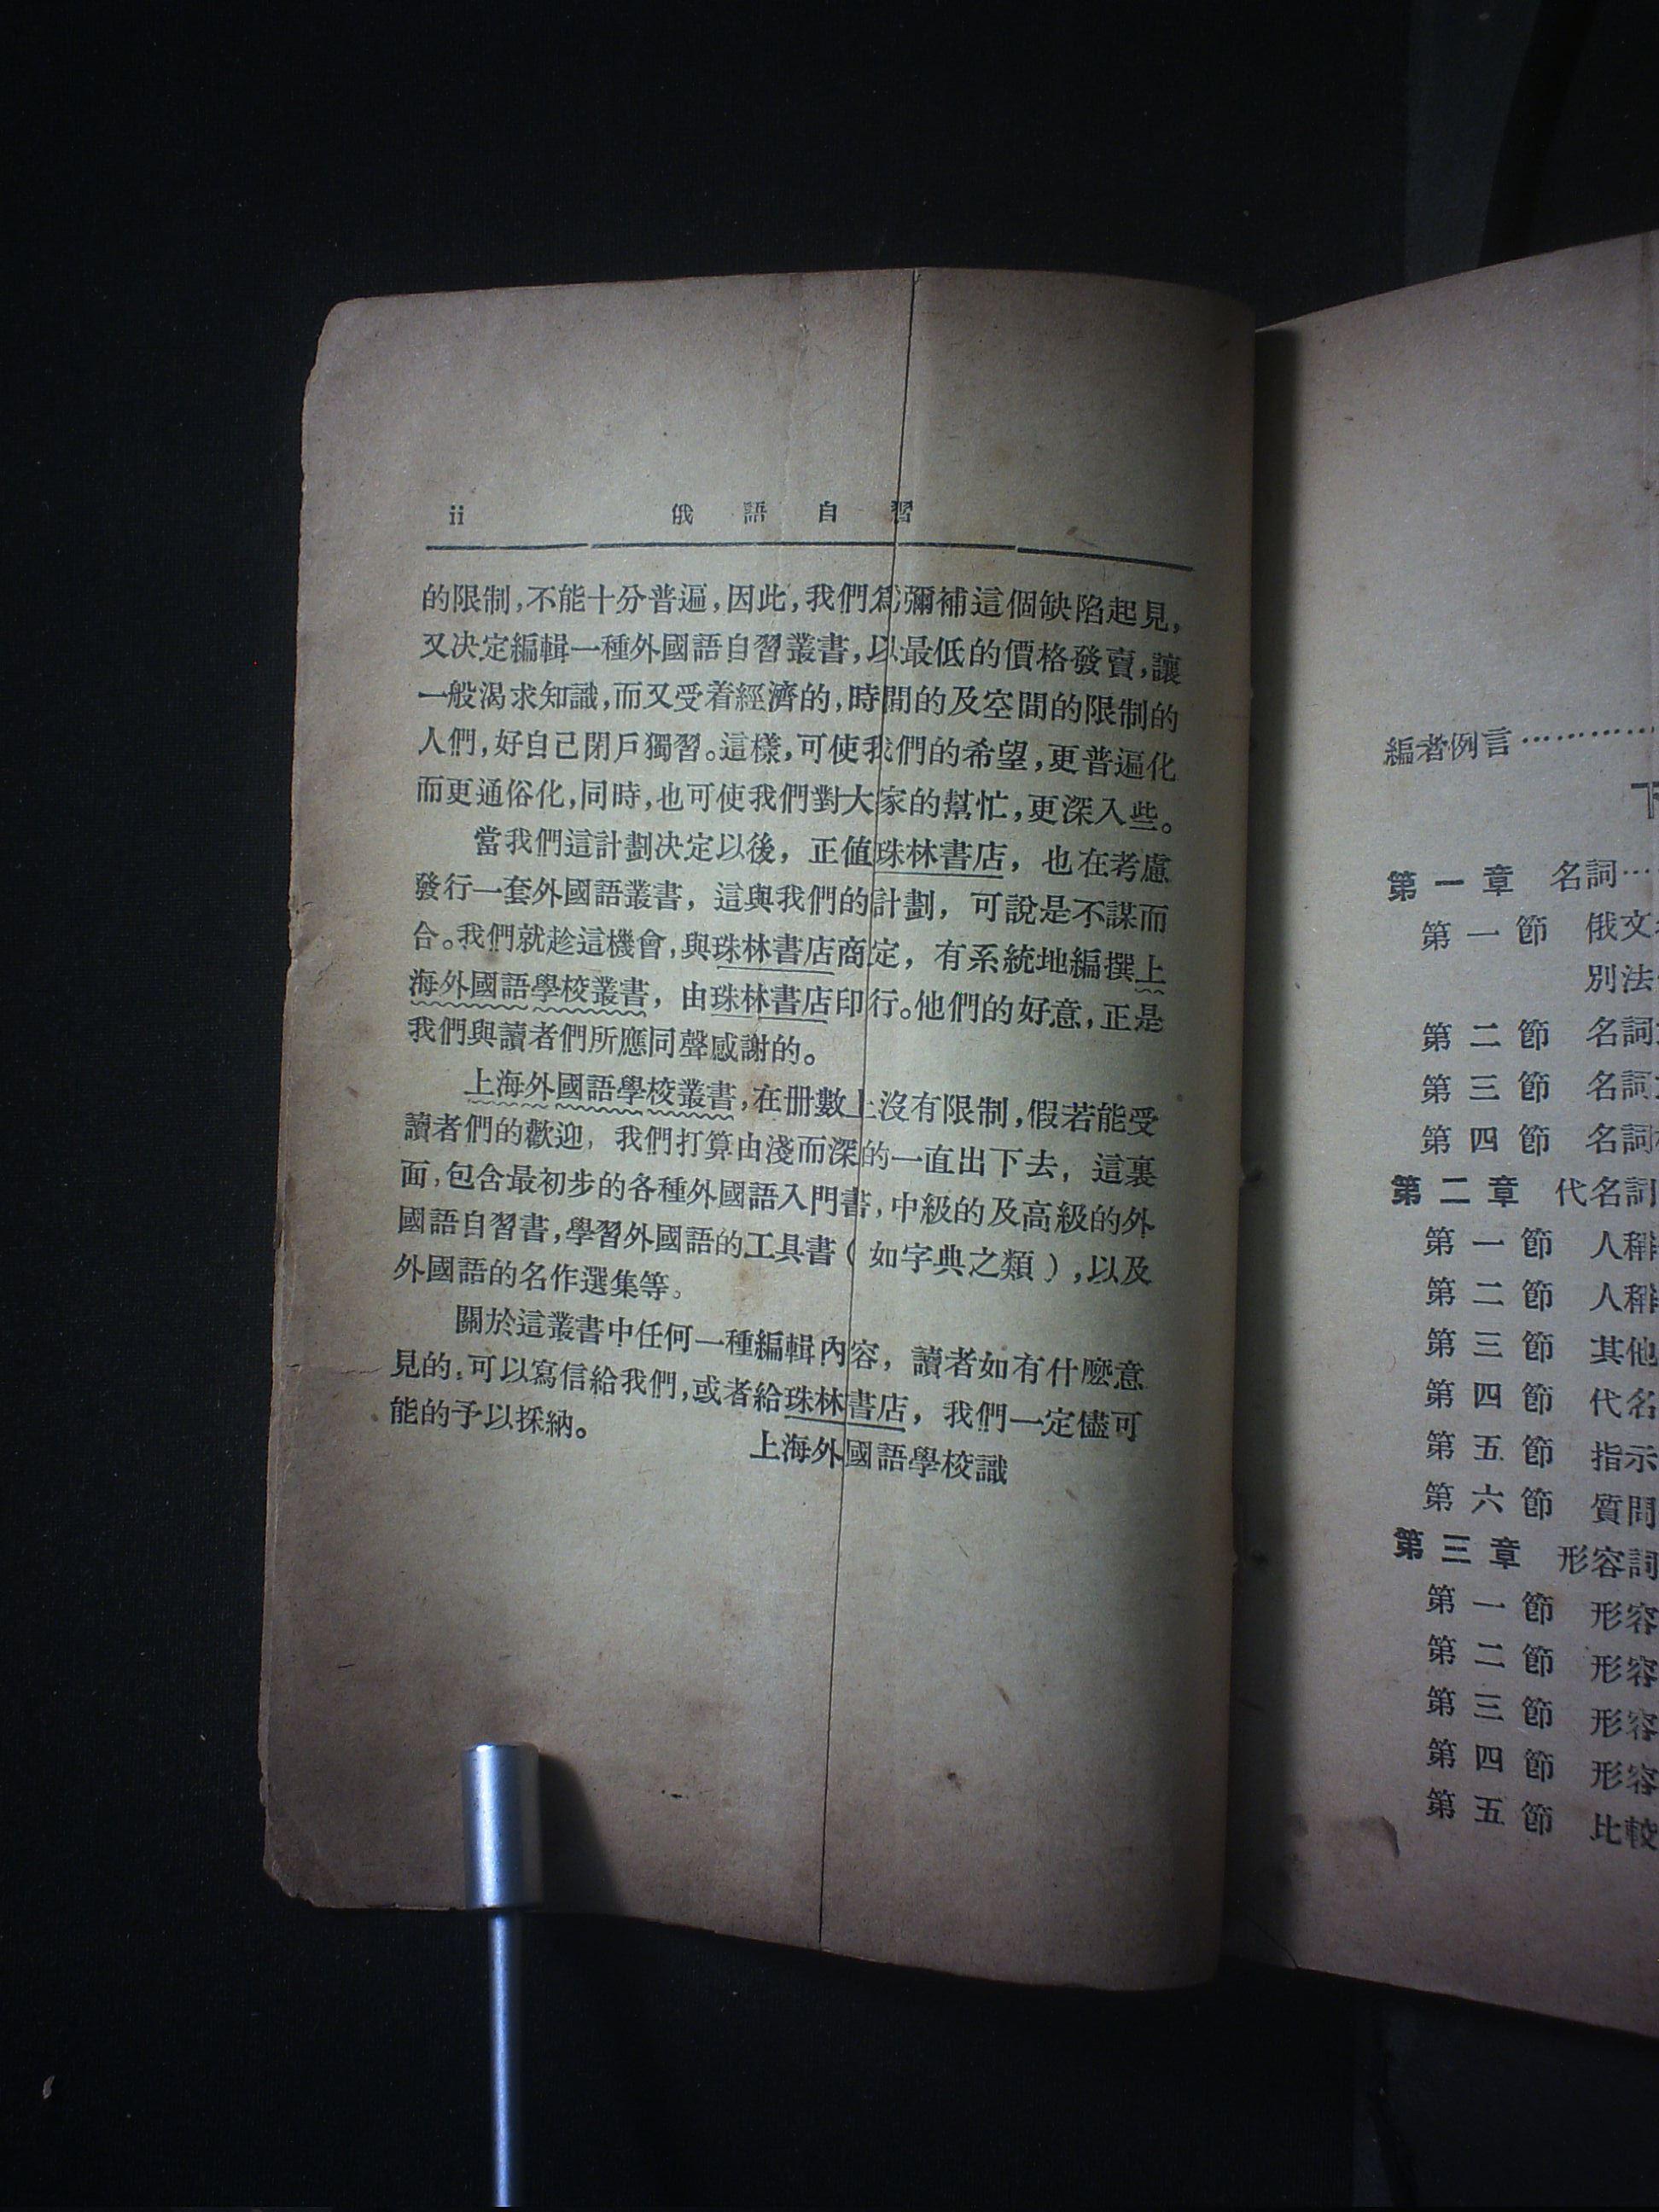 ii 俄語自習
的限制,不能十分普遍,因此,我們爲彌補這個缺陷起見,
又决定編輯一種外國語自習叢書,以最低的價格發賣,讓
一般渴求知識,而又受着經濟的,時間的及空間的限制的
人們,好自己閉戶獨習。這樣,可使我們的希望,更普遍化
而更通俗化,同時,也可使我們對大家的幫忙,更深入些。
當我們這計劃决定以後,正値珠林書店,也在考慮
發行一套外國語叢書,這與我們的計劃,可說是不謀而
合。我們就趁這機會,與珠林書店商定,有系統地編撰上
海外國語學校叢書,由珠林書店印行。他們的好意,正是
我們與讀者們所應同聲感謝的。
上海外國語學校叢書,在册數上沒有限制,假若能受
讀者們的歡迎,我們打算由淺而深的一直出下去,這裏
面,包含最初步的各種外國語入門書,中級的及高級的外
國語自習書,學習外國語的工具書(如字典之類),以及
外國語的名作選集等。
關於這叢書中任何一種編輯內容,讀者如有什麽意
見的,可以寫信給我們,或者給珠林書店,我們一定儘可
能的予以採納。
上海外國語學校識
編者例言…………
下
第一章 名詞…
第一節 俄文
別法
第二節 名詞
第三節 名詞
第四節 名詞
第二章 代名詞
第一節 人稱
第二節 人稱
第三節 其他
第四節 代名
第五節 指示
第六節 質問
第三章 形容詞
第一節 形容
第二節 形容
第三節 形容
第四節 形容
第五節 比較